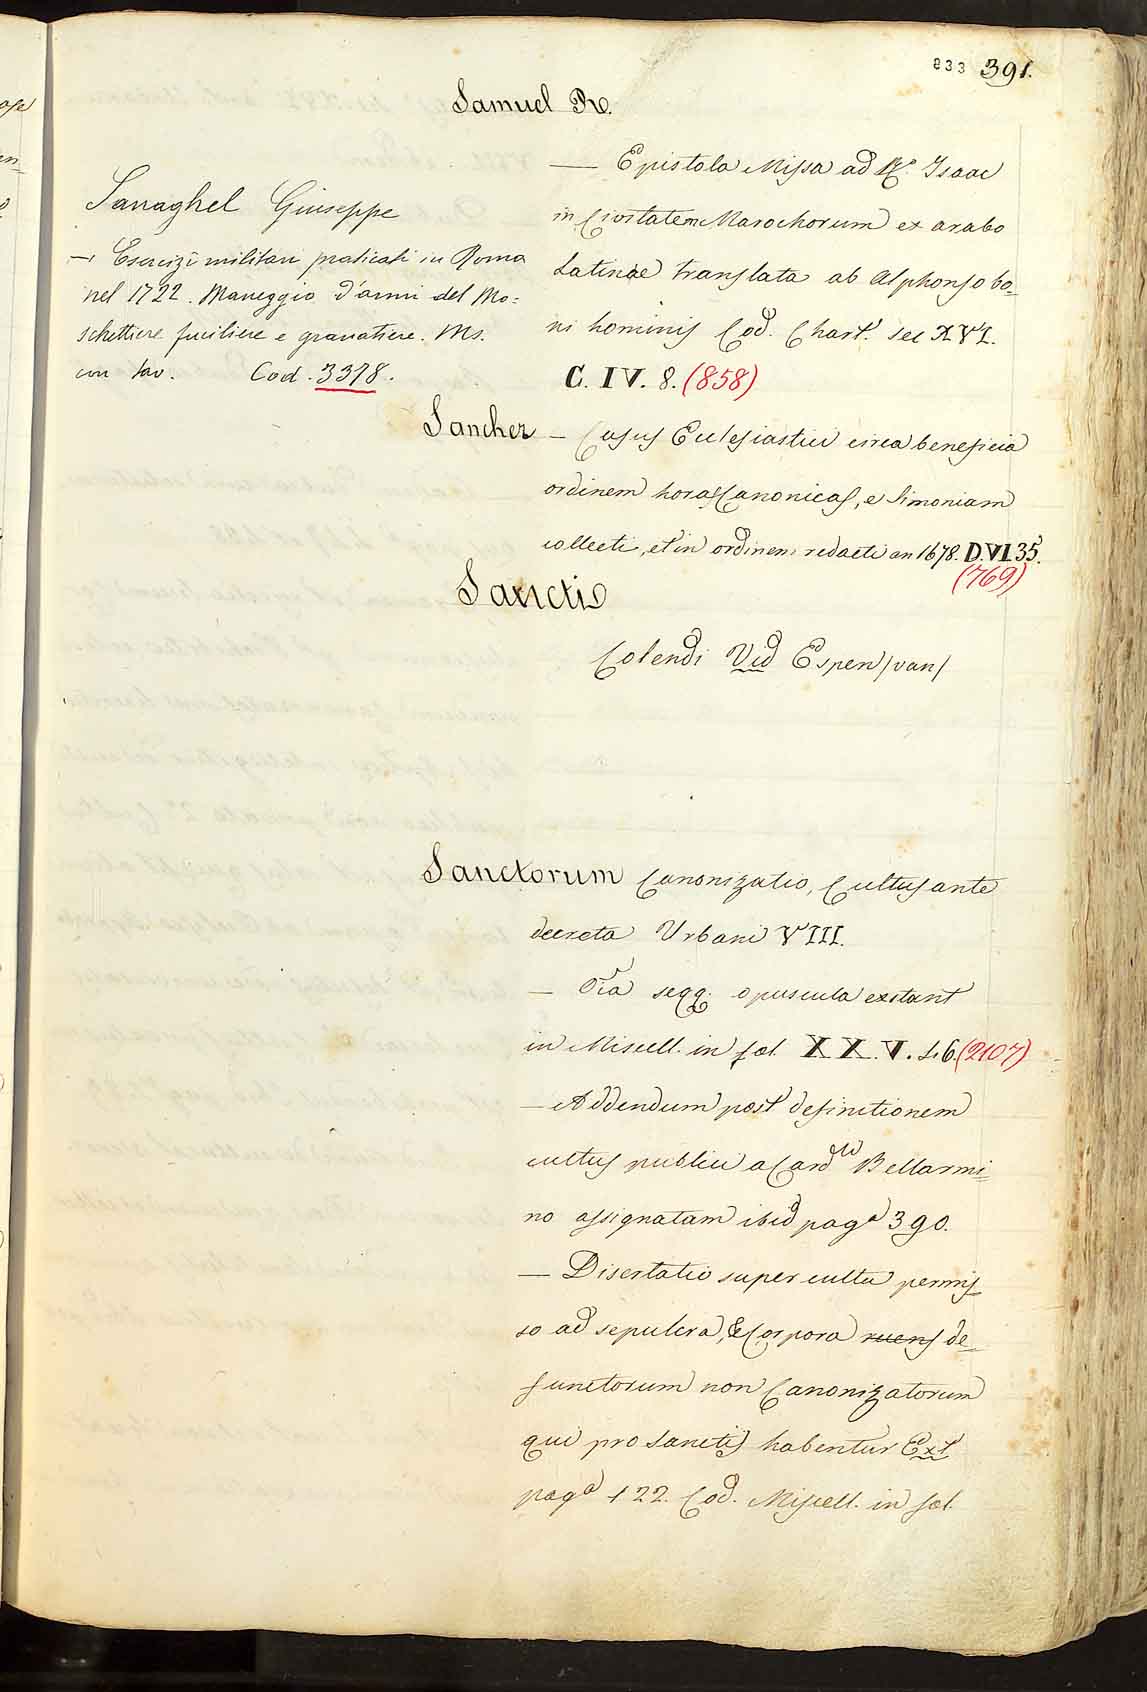 833 391.
Samuel R.
— Epistola Missa ad R. Isaac
in Civitatem Marochorum ex arabo
Latinae translata ab Alphonso bo-
ni hominis Cod. Chart. sec XVI.
C. IV. 8. (858)
Sanaghel Giuseppe
— Esercizi militari praticati in Roma
nel 1722. Maneggio d'armi del Mo=
schettiere fuciliere e granatiere. Ms.
con tav. Cod. 3378.
Sanchez — Casus Eclesiastici circa beneficia
ordinem horas Canonicas, e Simoniam
collecti, et in ordinem redacti an 1678. D.VI 35.
(769)
Sancti
Colendi Vid Espen /van/
Sanctorum Canonizatio, Cultus ante
decreta Urbani VIII.
— Oĩa seqq. opuscula exstant
in Miscell. in fol. XX.V. S. 6. (2107)
— Addendum post definitionem
cultus publici a Card. Bellarmi=
no assignatam ibid pagª 390.
— Disertatio super cultu permis
so ad sepulcra, & Corpora ruens de=
functorum non Canonizatorum
qui pro Sanctis habentur Ext
pagª 122. Cod. Miscell. in fol.